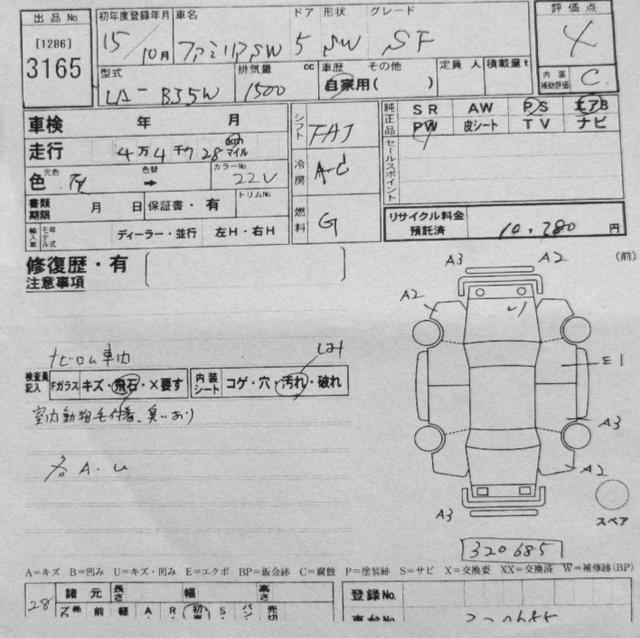 出品No.
[1286]
3165
初年度登録年月 車名 ドア 形状 グレード
15/10月 ファミリアSW 5 SW SF
型式 排気量 cc 車歴 その他 定員 人 積載量 t
LA-B35W 1500 自家用( )
評価点
4
内装補助評価 C
車検 年 月
走行 4万4千028 km マイル
色 元色 色替 カラーNo.
灰 → 22V
書類期限 月 日 保証書・有 トリムNo.
輸入車 モデル年式 ディーラー・並行 左H・右H
シフト FAT
冷房 A-C
燃料 G
純正品 SR AW PS エアB
PW 皮シート TV ナビ
セールスポイント
リサイクル料金預託済 10.280 円
修復歴・有
注意事項
(前)
A3 A2
A2 U1
E1
A3
A2
A3
スペア
ナビロム車内
シミ
検査員記入 Fガラス キズ・飛石・×要す 内装シート コゲ・穴・汚れ・破れ
室内動物毛付着、臭いあり
各A・U
320685
A=キズ B=凹み U=キズ・凹み E=エクボ BP=鈑金跡 C=腐蝕 P=塗装跡 S=サビ X=交換要 XX=交換済 W=補修跡(BP)
28
諸元 長さ 幅 高さ
登録No.